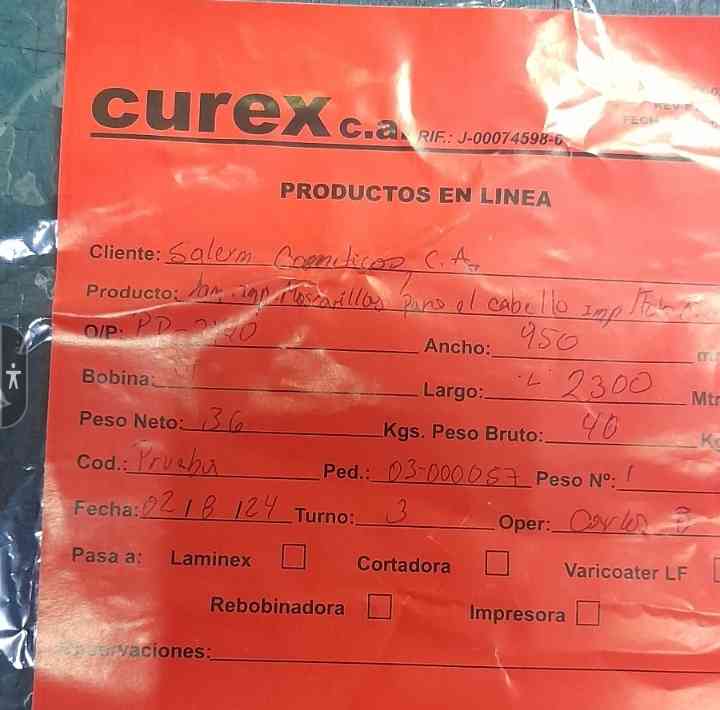 curex c.a. RIF.: J-00074598-6
REV
FECH
PRODUCTOS EN LINEA
Cliente: Salerm Cosmeticos C.A.
Producto: Lam. imp. Mascarillas para el cabello imp
O/P: PP-2120 Ancho: 950
Bobina: Largo: 2300 Mtr
Peso Neto: 36 Kgs. Peso Bruto: 40 Kg
Cod.: Prueba Ped.: 03-000057 Peso Nº: 1
Fecha: 02 18 124 Turno: 3 Oper: Carlos
Pasa a: Laminex Cortadora Varicoater LF
Rebobinadora Impresora
Observaciones: